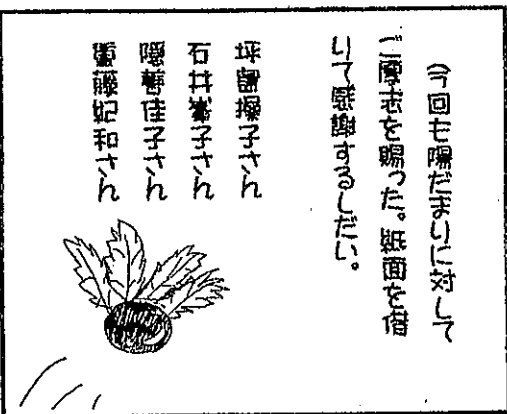 今回も陽だまりに対して
ご厚志を賜った。紙面を借
りて感謝するしだい。
坪留操子さん
石井峯子さん
隠善佳子さん
斎藤妃和さん